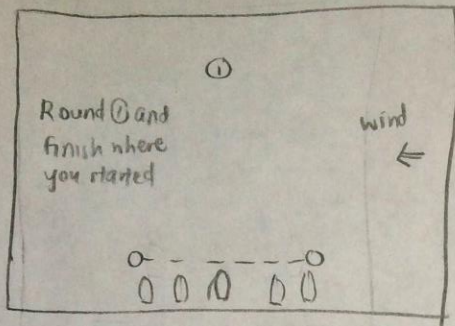 ①
Round ① and
finish where
you started
wind